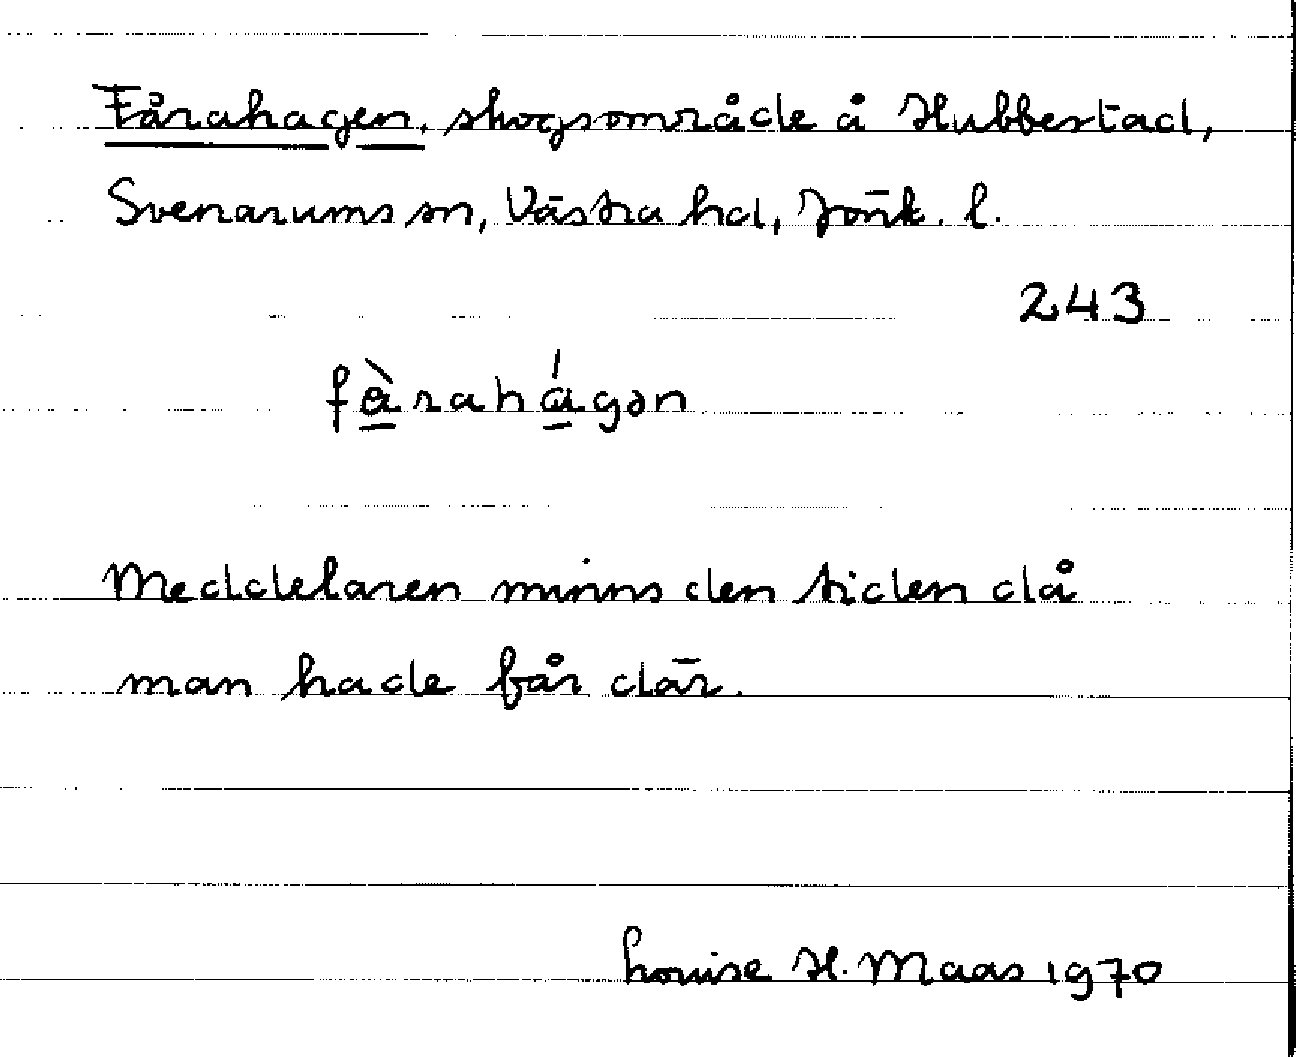 Fårahagen, skogsområde å Hubbestad,
Svenarums sn, Västra hd, Jönk. l.
243
fàrahágən
Meddelaren minns den tiden då
man hade får där.
Louise H. Maas 1970